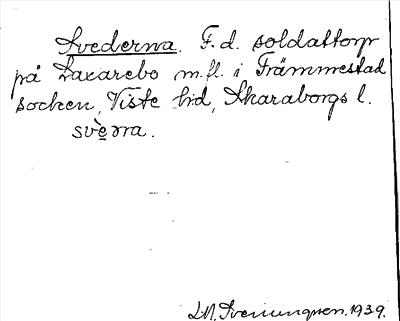 Svederna. F.d. soldattorp
på Laxarebo m.fl. i Främmestad
socken, Viste hd, Skaraborgs l.
svèrra.
1939.